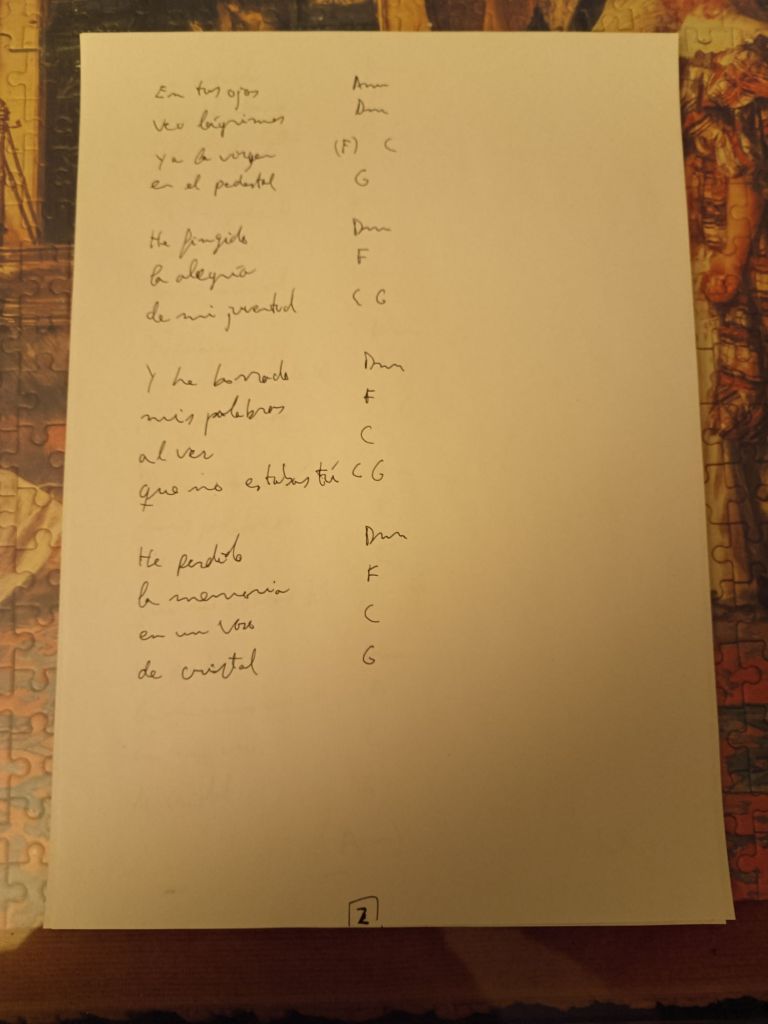 En tus ojos Am
veo lágrimas Dm
y a la virgen (F) C
en el pedestal G
He fingido Dm
la alegría F
de mi juventud C G
Y he borrado Dm
mis palabras F
al ver C
que no estabas tú C G
He perdido Dm
la memoria F
en un vaso C
de cristal G
2